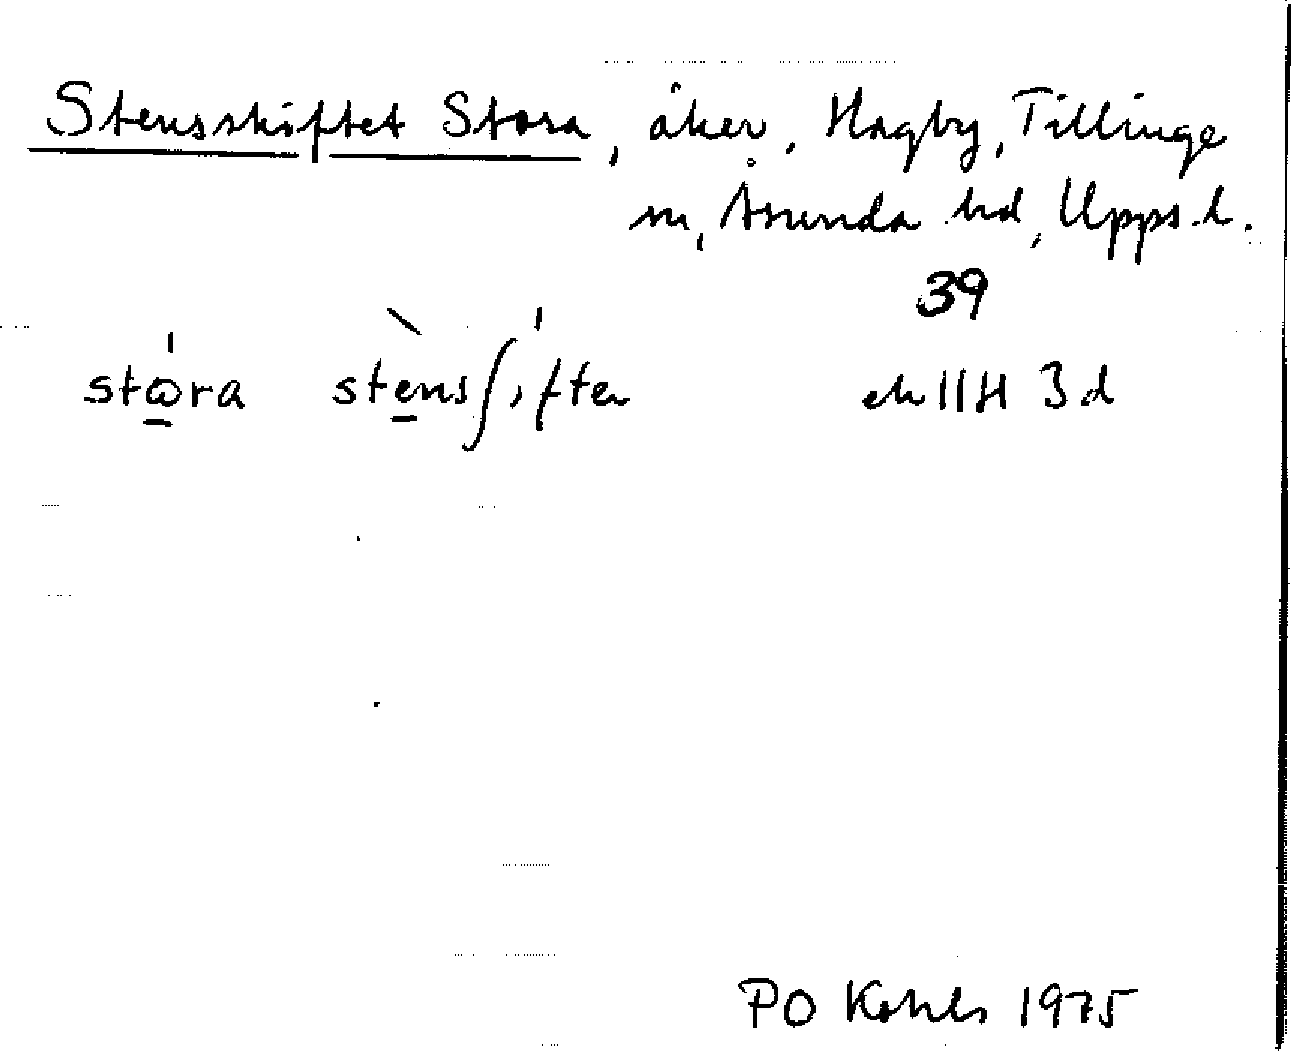 Stensskiftet Stora, åker, Hagby, Tillinge
sn, Åsunda hd, Upps. l.
39
stѡra stensʃiften ek 11H 3d
PO 1975